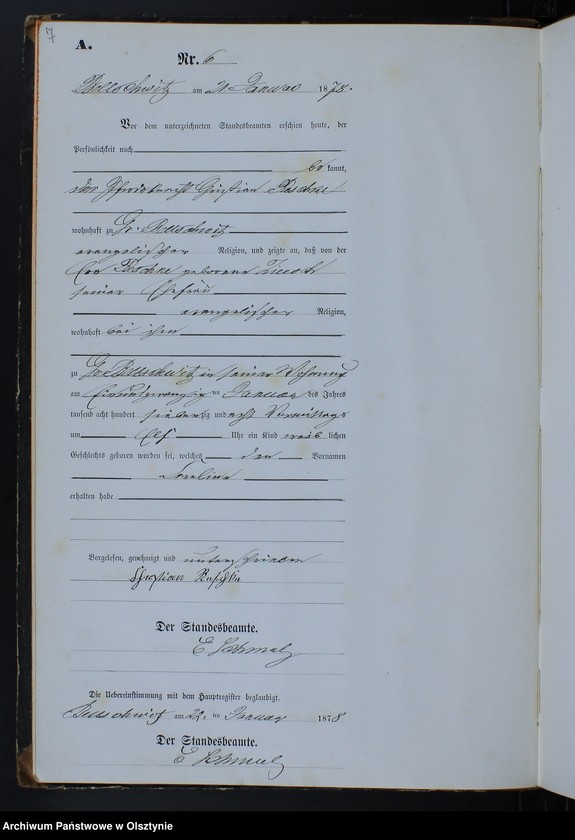 7
A.
Nr. 6
Bellschwitz am 21 Januar 1878.
Vor dem unterzeichneten Standesbeamten erschien heute, der
Persönlichkeit nach
be kannt,
der Pferdeknecht Christian Paschke
wohnhaft zu Gr. Bellschwitz
evangelischer Religion, und zeigte an, daß von der
Paschke geborene
seiner Ehefrau
evangelischer Religion,
wohnhaft bei ihm
zu Gr Bellschwitz in seiner Wohnung
am Einundzwanzig ten Januar des Jahres
tausend acht hundert siebenzig und acht Vormittags
um Elf Uhr ein Kind weib lichen
Geschlechts geboren worden sei, welches den Vornamen
erhalten habe
Vorgelesen, genehmigt und unterschrieben
Christian
Der Standesbeamte.
E Schmalz
Die Uebereinstimmung mit dem Hauptregister beglaubigt.
Bellschwitz am 22. ten Januar 1878
Der Standesbeamte.
E Schmalz
Archiwum Państwowe w Olsztynie